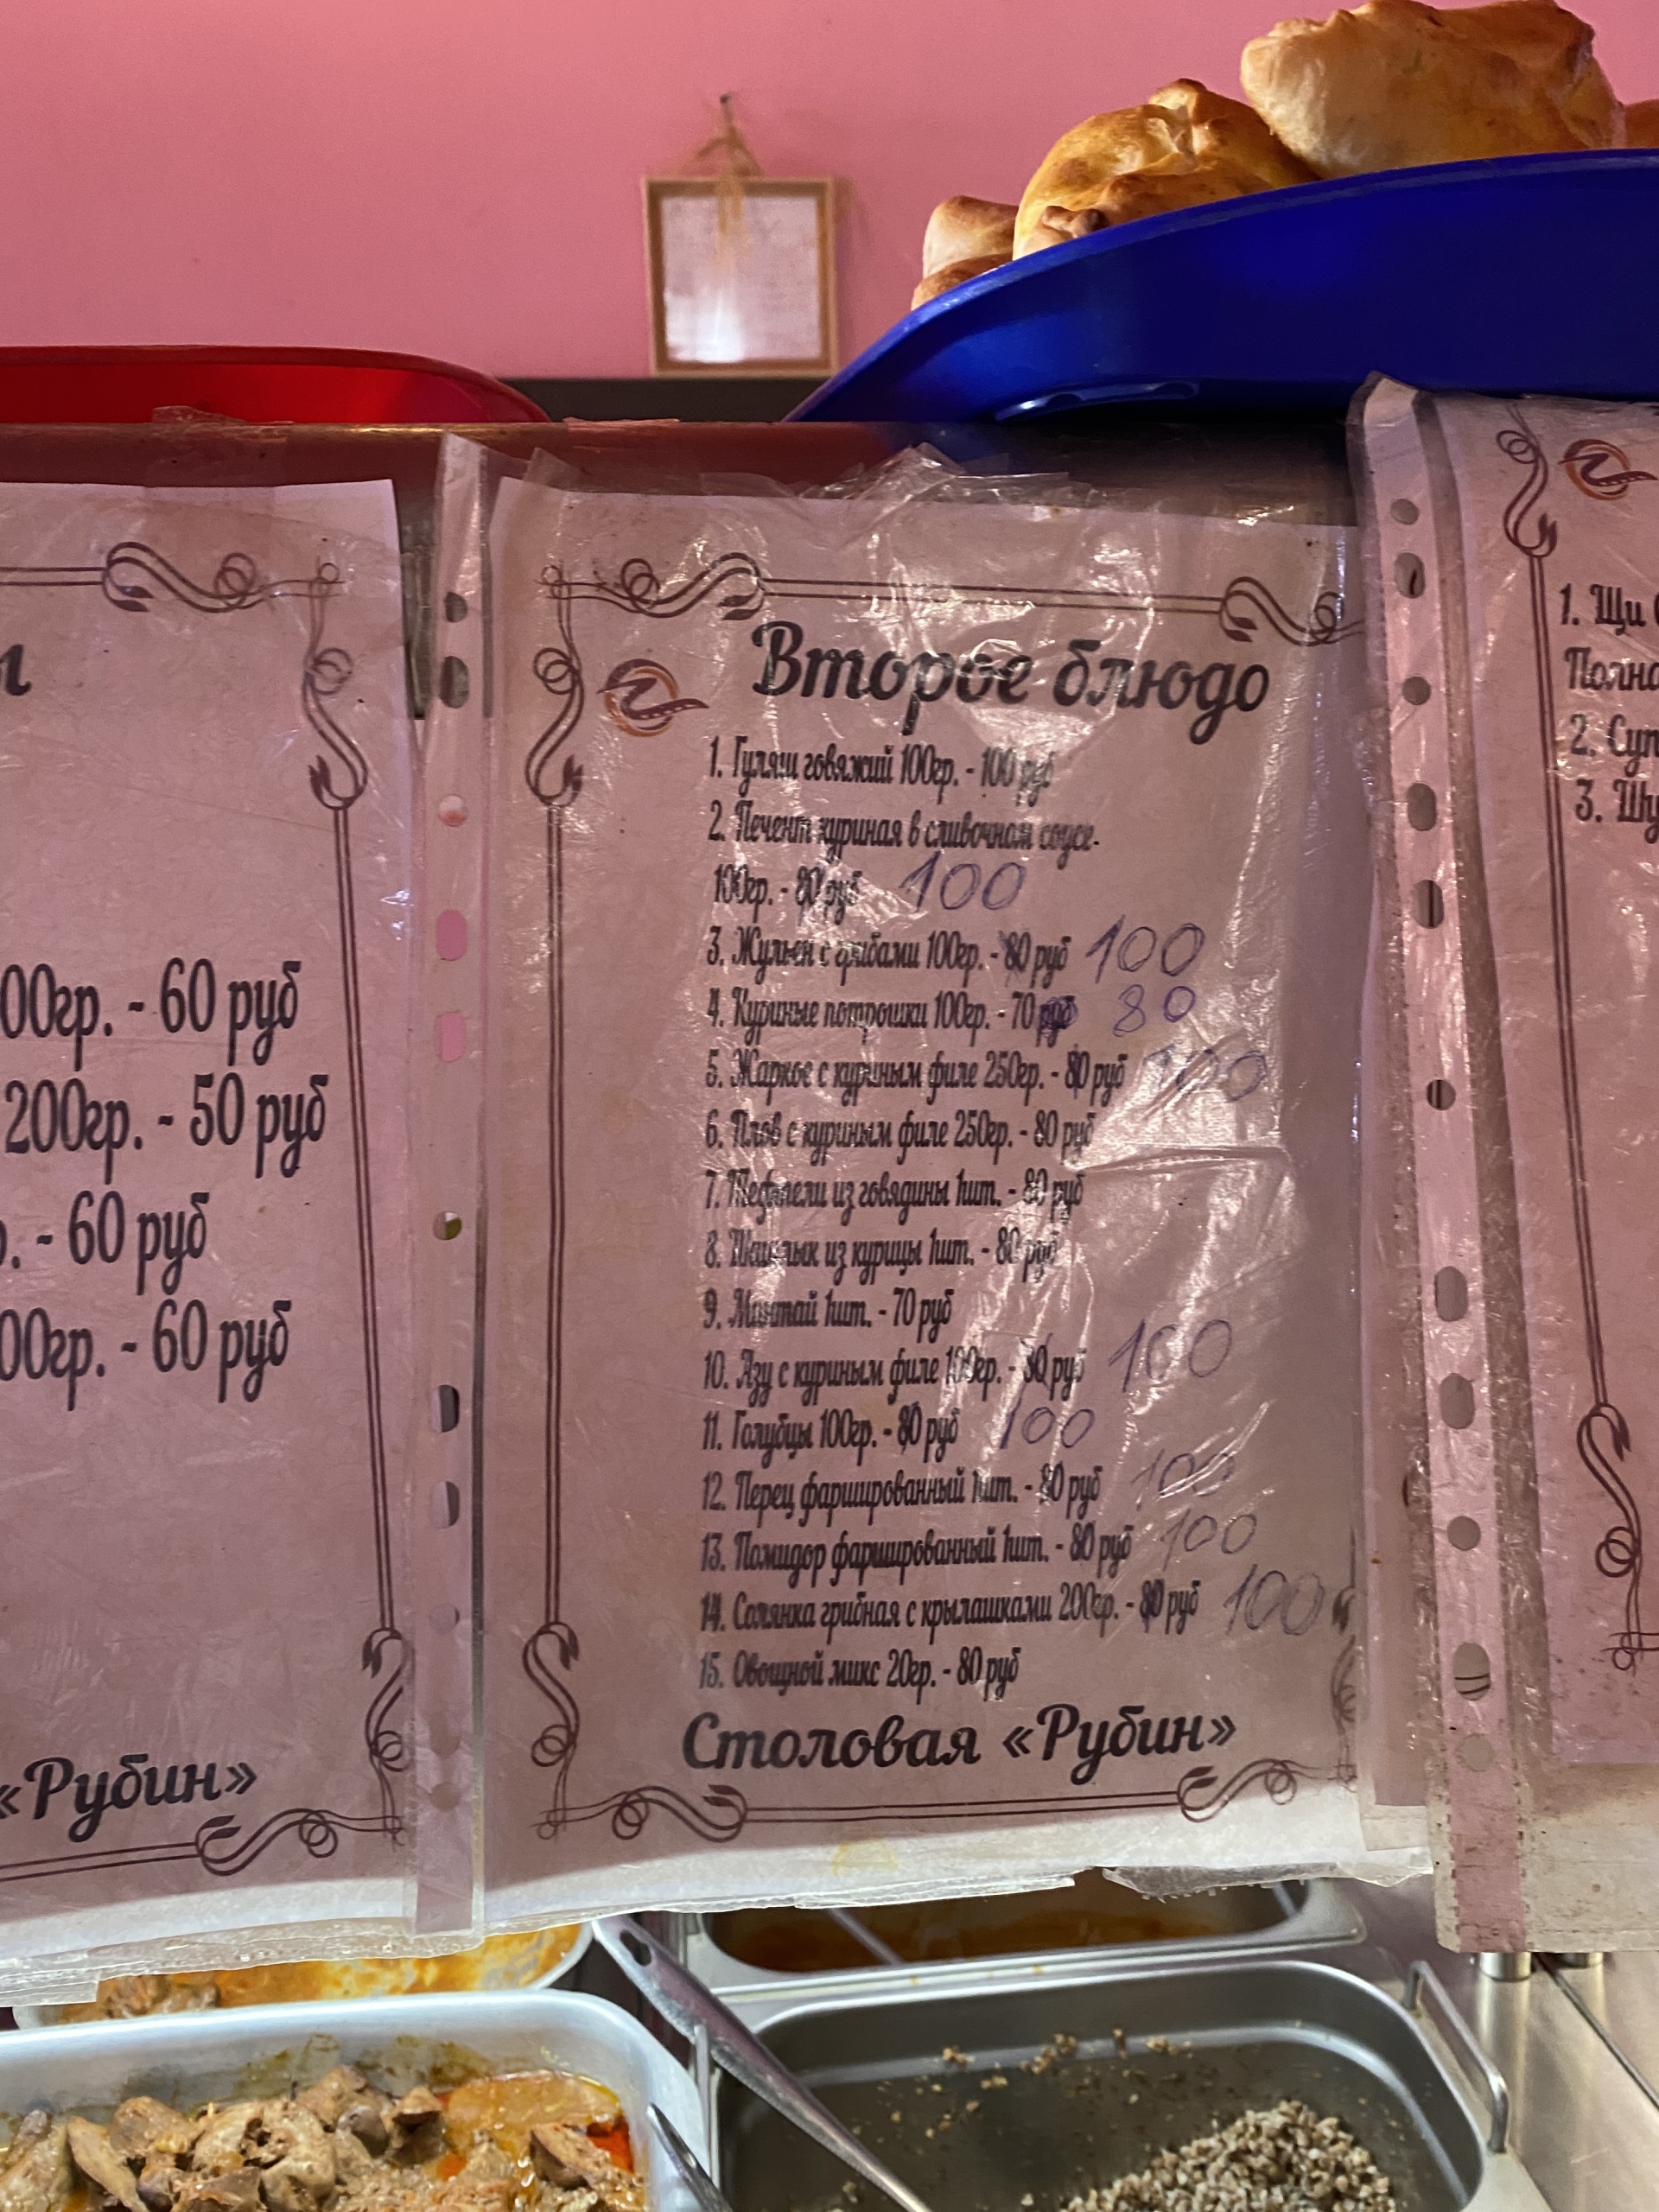 ы
00гр. - 60 руб
200гр. - 50 руб
. - 60 руб
00гр. - 60 руб
«Рубин»
Второе блюдо
1. Гуляш говяжий 100гр. - 100 руб
2. Печент куриная в сливочном соусе-
100гр. - 80 руб 100
3. Жульен с грибами 100гр. - 80 руб 100
4. Куриные потрошки 100гр. - 70 руб 80
5. Жаркое с куриным филе 250гр. - 80 руб 100
6. Плов с куриным филе 250гр. - 80 руб
7. Тефтели из говядины 1шт. - 80 руб
8. Шашлык из курицы 1шт. - 80 руб
9. Минтай 1шт. - 70 руб
10. Азу с куриным филе 100гр. - 80 руб 100
11. Голубцы 100гр. - 80 руб 100
12. Перец фаршированный 1шт. - 80 руб 100
13. Помидор фаршированный 1шт. - 80 руб 100
14. Солянка грибная с крылашками 200гр. - 80 руб 100
15. Овощной микс 20гр. - 80 руб
Столовая «Рубин»
1. Щи
Полна
2. Суп
3. Шу